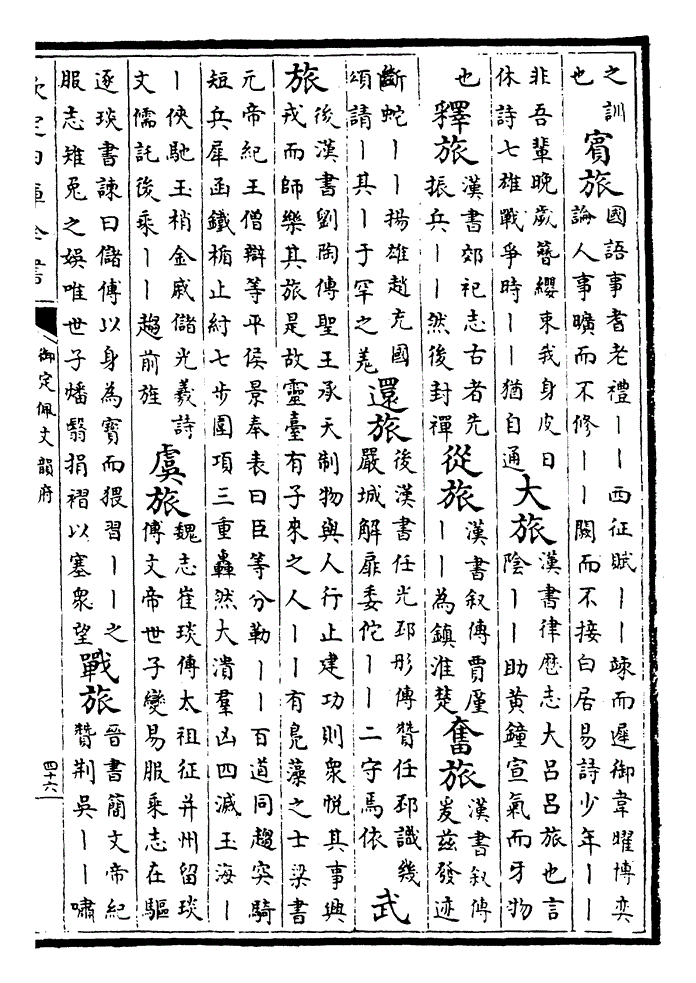 之訓
也
賓旅
國語事耆老禮丨丨西征賦丨丨竦而遲御韋曜博奕
論人事曠而不修丨丨闕而不接白居易詩少年丨丨
非吾輩晚歲簪纓束我身皮日
休詩七雄戰爭時丨丨猶自通
大旅
漢書律歷志大呂呂旅也言
陰丨丨助黃鐘宣氣而牙物
也
釋旅
漢書郊祀志古者先
振兵丨丨然後封禪
從旅
漢書叙傳賈廑
丨丨為鎮淮楚
奮旅
漢書叙傳
爰茲發迹
斷蛇丨丨揚雄趙充國
頌請丨其丨于罕之羌
還旅
後漢書任光邳彤傳贊任邳識幾
嚴城解扉委佗丨丨二守焉依
武
旅
後漢書劉陶傳聖王承天制物與人行止建功則衆悅其事興
戎而師樂其旅是故靈臺有子來之人丨丨有鳧藻之士梁書
元帝紀王僧辯等平侯景奉表曰臣等分勒丨丨百道同趨突騎
短兵犀函鐵楯止紂七步圍項三重轟然大潰羣凶四滅玉海丨
丨俠馳玉梢金戚儲光羲詩
文儒託後乘丨丨趨前旌
虞旅
魏志崔琰傳太祖征并州留琰
傅文帝世子變易服乘志在驅
逐琰書諫曰儲傅以身為寶而猥習丨丨之
服志雉兎之娛唯世子燔翳捐褶以塞衆望
戰旅
晉書簡文帝紀
贊荆吳丨丨嘯
欽定四庫全書
御定佩文韻府
四十六